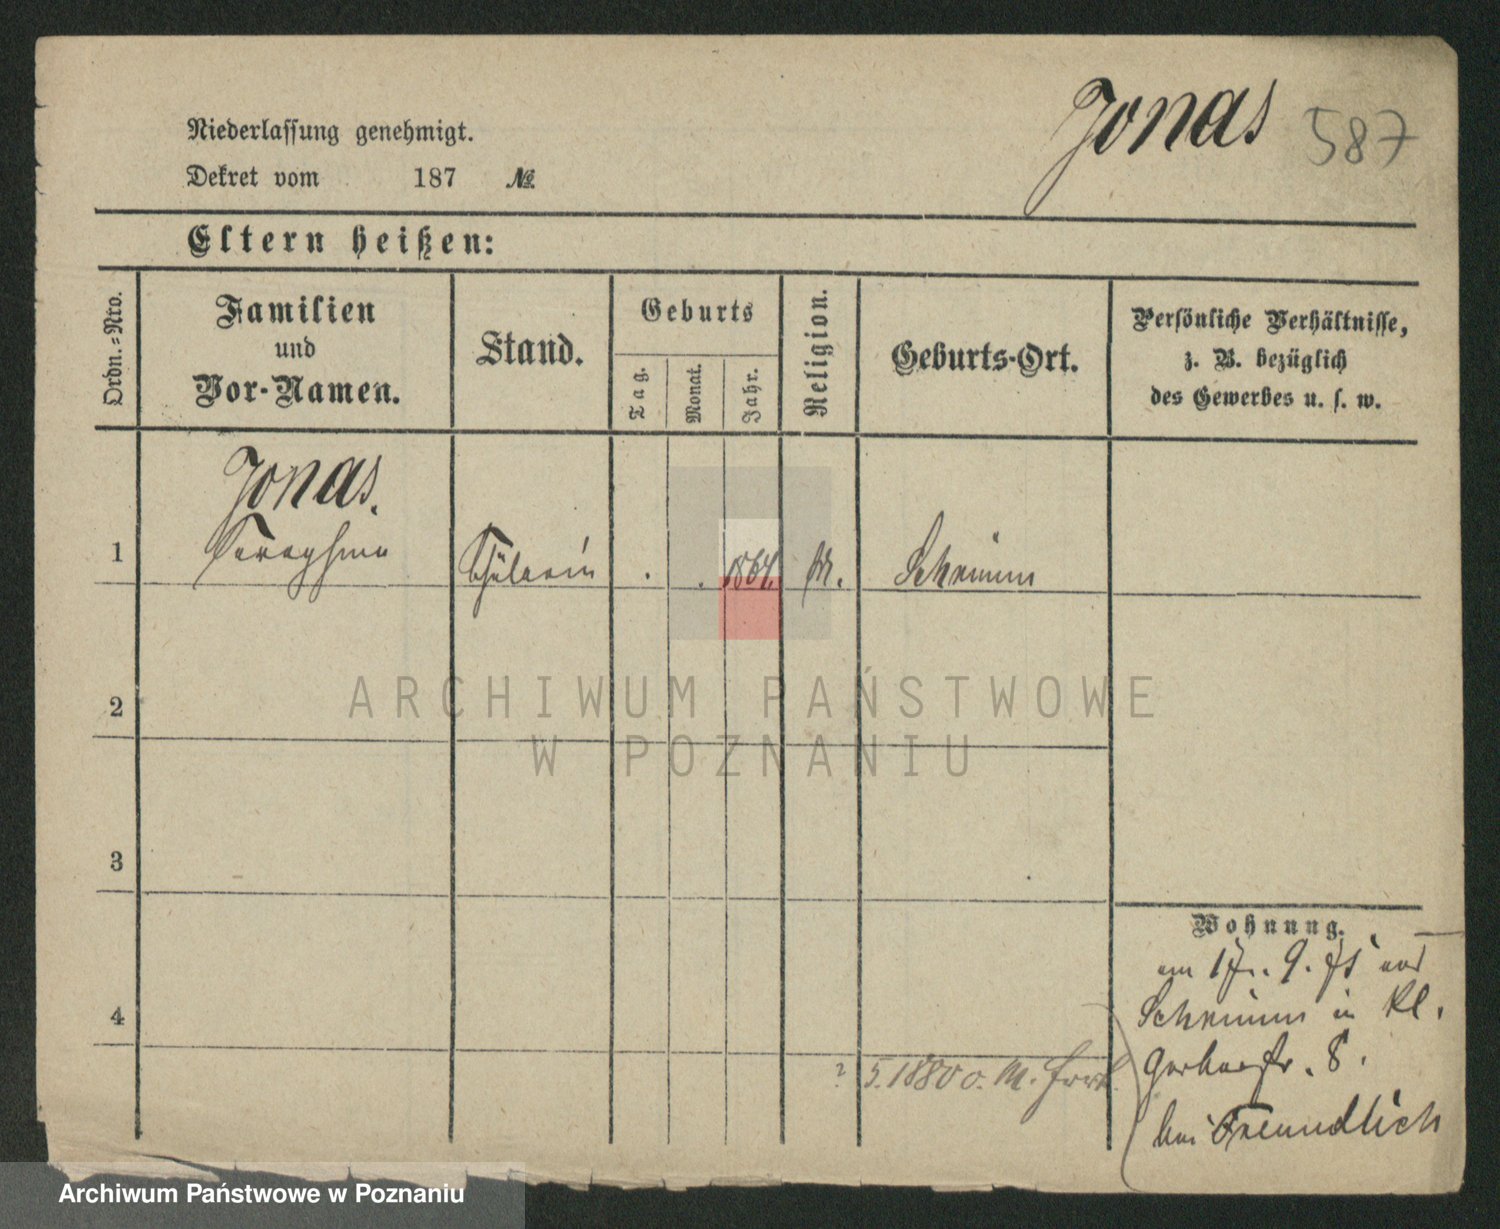 Jonas 587
Niederlassung genehmigt.
Dekret vom 187 No.
Eltern heißen:
Ordn.-Nro.
Familien
und
Vor-Namen.
Stand.
Geburts
Tag.
Monat.
Jahr.
Religion.
Geburts-Ort.
Persönliche Verhältnisse,
z. B. bezüglich
des Gewerbes u. s. w.
Jonas.
1 Seraphine Schülerin . . 1864. Schrimm
2
3
4
Wohnung.
am 17. 9. 75 aus
Schrimm in Kl.
Gerberstr. 8.
bei Freundlich
? 5. 1880 o. M. fort.
ARCHIWUM PAŃSTWOWE
W POZNANIU
Archiwum Państwowe w Poznaniu